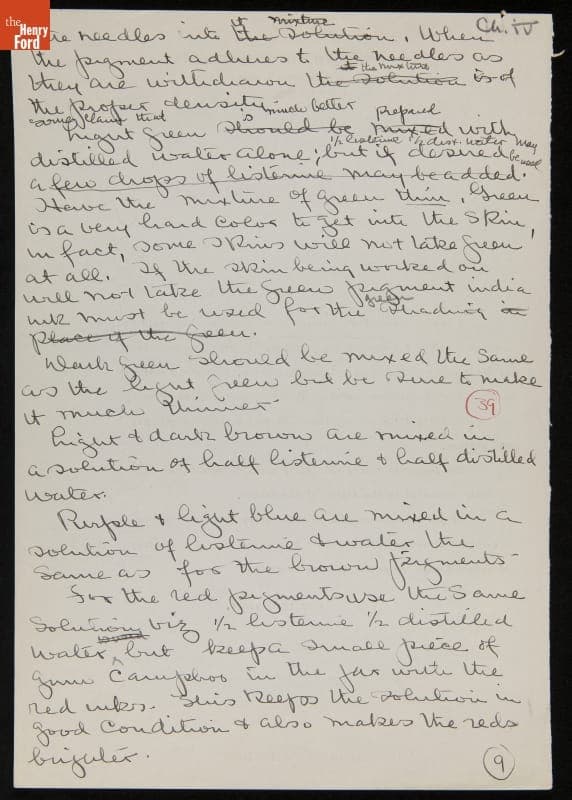 the Henry Ford
Ch. IV
it mixture
the needles into the solution. When
the pigment adheres to the needles as
it the mixture
they are withdrawn the solution is of
the proper density
some claim that is much better prepared
Light green should be mixed with
1/2 listerine 1/2 dist. water may
distilled water alone; but if desired be used
a few drops of listerine may be added.
Have the mixture of green thin. Green
is a very hard color to get into the skin,
in fact, some skins will not take green
at all. If the skin being worked on
will not take the green pigment india
green
ink must be used for the shading in
place of the green.
Dark green should be mixed the same
as the light green but be sure to make
it much thinner.
39
Light & dark brown are mixed in
a solution of half listerine & half distilled
water.
Purple & light blue are mixed in a
solution of listerine & water the
same as for the brown pigments.
For the red pigments use the same
solution viz 1/2 listerine 1/2 distilled
water, but keep a small piece of
gum camphor in the jar with the
red inks. This keeps the solution in
good condition & also makes the reds
brighter.
9